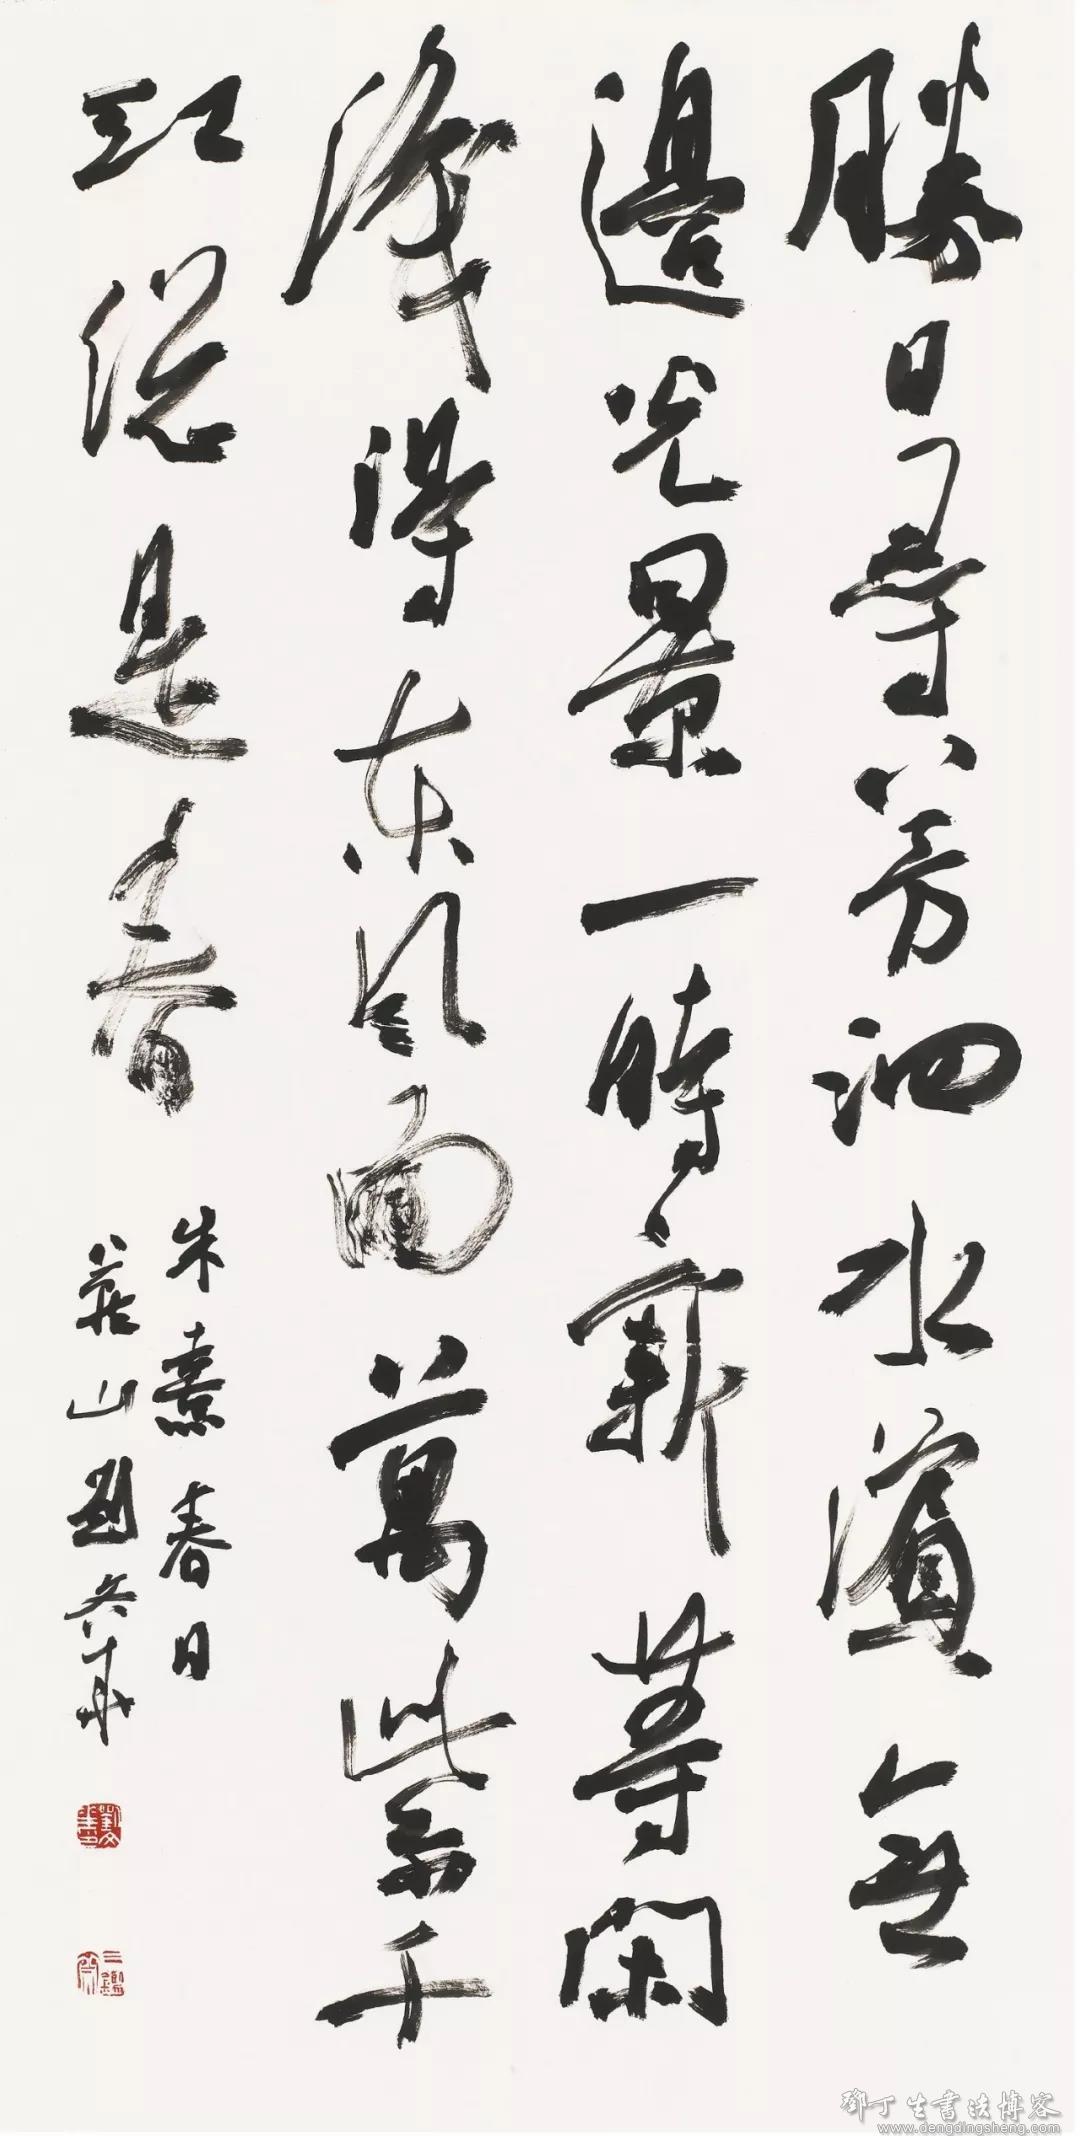 勝日尋芳泗水濱無
邊光景一時新等閑
識得東風面萬紫千
紅總是春
朱熹春日
燕山劉文華
鄧丁生書法博客
www.dengdingsheng.com